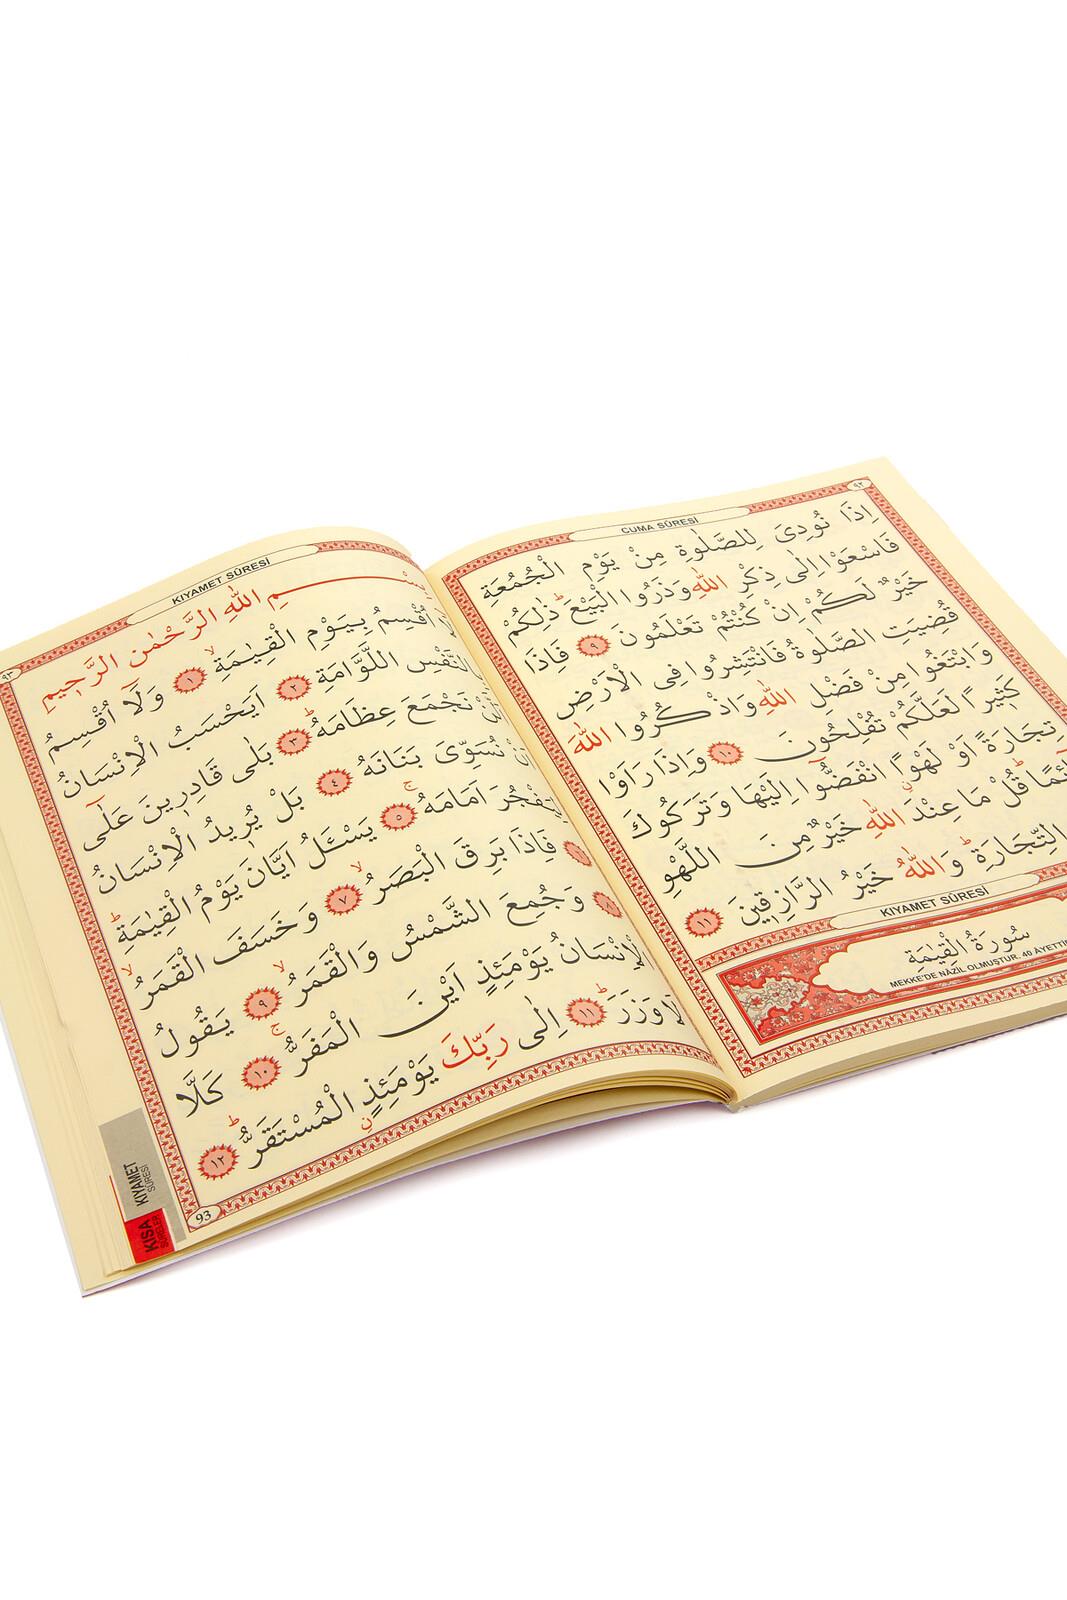 ٩٢
CUMA SÛRESİ
اِذَا نُودِىَ لِلصَّلٰوةِ مِنْ يَوْمِ الْجُمُعَةِ
فَاسْعَوْا اِلٰى ذِكْرِ اللّٰهِ وَذَرُوا الْبَيْعَۜ ذٰلِكُمْ
خَيْرٌ لَكُمْ اِنْ كُنْتُمْ تَعْلَمُونَ ٩ فَاِذَا
قُضِيَتِ الصَّلٰوةُ فَانْتَشِرُوا فِى الْاَرْضِ
وَابْتَغُوا مِنْ فَضْلِ اللّٰهِ وَاذْكُرُوا اللّٰهَ
كَثِيرًا لَعَلَّكُمْ تُفْلِحُونَ ١٠ وَاِذَا رَاَوْا
تِجَارَةً اَوْ لَهْوًا انْفَضُّٓوا اِلَيْهَا وَتَرَكُوكَ
قُلْ مَا عِنْدَ اللّٰهِ خَيْرٌ مِنَ اللَّهْوِ
التِّجَارَةِۜ وَاللّٰهُ خَيْرُ الرَّازِقِينَ ١١
KIYAMET SÛRESİ
سُورَةُ الْقِيٰمَةِ
MEKKE'DE NÂZİL OLMUŞTUR. 40
٩٣
KIYAMET SÛRESİ
اللّٰهِ الرَّحْمٰنِ الرَّحِيمِ
اُقْسِمُ بِيَوْمِ الْقِيٰمَةِۙ ١ وَلَٓا اُقْسِمُ
النَّفْسِ اللَّوَّامَةِ ٢ اَيَحْسَبُ الْاِنْسَانُ
نَجْمَعَ عِظَامَهُۜ ٣ بَلٰى قَادِرِينَ عَلٰٓى
نُسَوِّىَ بَنَانَهُ ٤ بَلْ يُرِيدُ الْاِنْسَانُ
اَمَامَهُۚ ٥ يَسْـَٔلُ اَيَّانَ يَوْمُ الْقِيٰمَةِۜ
٦ فَاِذَا بَرِقَ الْبَصَرُۙ ٧ وَخَسَفَ الْقَمَرُۙ
٨ وَجُمِعَ الشَّمْسُ وَالْقَمَرُۙ ٩ يَقُولُ
الْاِنْسَانُ يَوْمَئِذٍ اَيْنَ الْمَفَرُّۚ ١٠ كَلَّا
لَا وَزَرَۜ ١١ اِلٰى رَبِّكَ يَوْمَئِذٍ الْمُسْتَقَرُّۜ ١٢
93
KIYAMET
SÛRESİ
KISA
SÛRELER